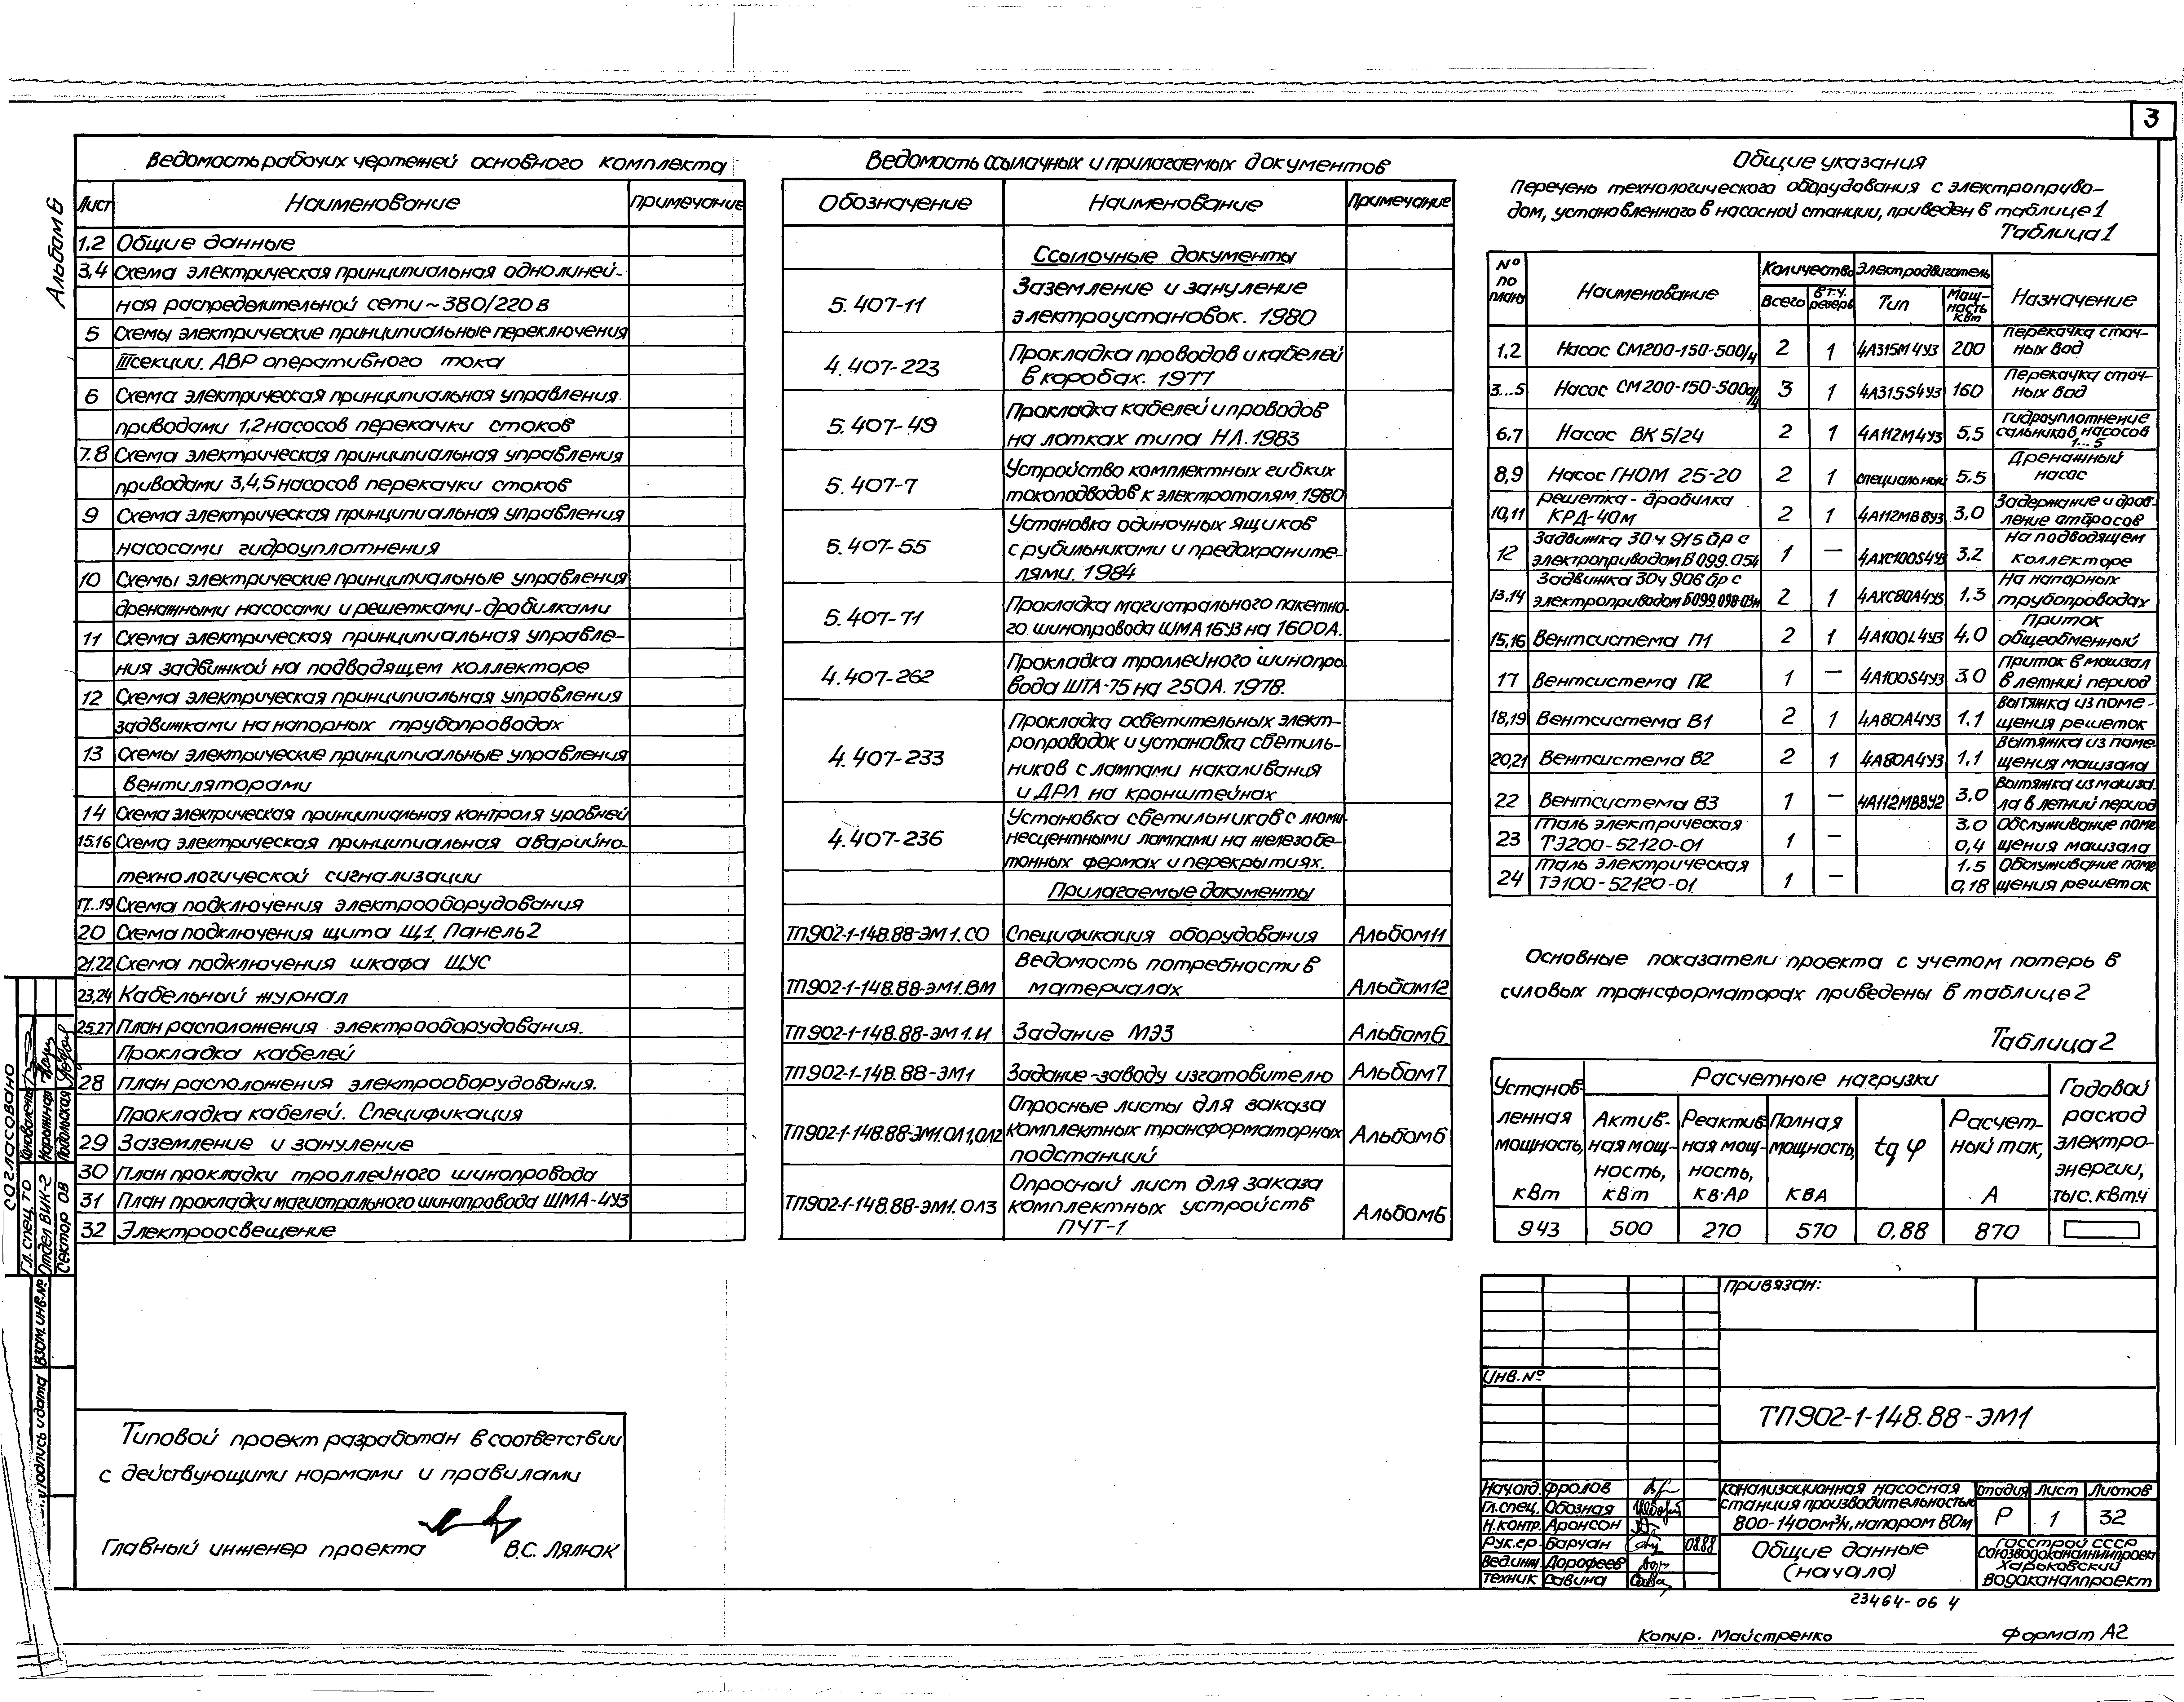 3
Альбом 6
Ведомость рабочих чертежей основного комплекта
Лист Наименование Примечание
1,2 Общие данные
3,4 Схема электрическая принципиальная однолиней-
ная распределительной сети ~380/220 в
5 Схемы электрические принципиальные переключения
III секции. АВР оперативного тока
6 Схема электрическая принципиальная управления
приводами 1,2 насосов перекачки стоков
7.8 Схема электрическая принципиальная управления
приводами 3,4,5 насосов перекачки стоков
9 Схема электрическая принципиальная управления
насосами гидроуплотнения
10 Схемы электрические принципиальные управления
дренажными насосами и решетками-дробилками
11 Схема электрическая принципиальная управле-
ния задвижкой на подводящем коллекторе
12 Схема электрическая принципиальная управления
задвижками на напорных трубопроводах
13 Схемы электрические принципиальные управления
вентиляторами
14 Схема электрическая принципиальная контроля уровней
15,16 Схема электрическая принципиальная аварийно-
технологической сигнализации
17..19 Схема подключения электрооборудования
20 Схема подключения щита Щ1. Панель 2
21,22 Схема подключения шкафа ЩУС
23,24 Кабельный журнал
25,27 План расположения электрооборудования.
Прокладка кабелей
28 План расположения электрооборудования.
Прокладка кабелей. Спецификация
29 Заземление и зануление
30 План прокладки троллейного шинопровода
31 План прокладки магистрального шинопровода ШМА-4У3
32 Электроосвещение
Ведомость ссылочных и прилагаемых документов
Обозначение Наименование Примечание
Ссылочные документы
5.407-11 Заземление и зануление
электроустановок. 1980
4.407-223 Прокладка проводов и кабелей
в коробах. 1977
5.407-49 Прокладка кабелей и проводов
на лотках типа НЛ. 1983
5.407-7 Устройство комплектных гибких
токоподводов к электроталям. 1980
5.407-55 Установка одиночных ящиков
с рубильниками и предохраните-
лями. 1984
5.407-71 Прокладка магистрального пакетно-
го шинопровода ШМА16У3 на 1600А.
4.407-262 Прокладка троллейного шинопро
вода ШТА-75 на 250А. 1978.
4.407-233 Прокладка осветительных элект-
ропроводок и установка светиль-
ников с лампами накаливания
и ДРЛ на кронштейнах
4.407-236 Установка светильников с люми-
несцентными лампами на железобе-
тонных фермах и перекрытиях.
Прилагаемые документы
ТП902-1-148.88-ЭМ1.СО Спецификация оборудования Альбом 11
ТП902-1-148.88-ЭМ1.ВМ Ведомость потребности в
материалах Альбом 12
ТП902-1-148.88-ЭМ1.И Задание МЭЗ Альбом 6
ТП902-1-148.88-ЭМ1 Задание-заводу изготовителю Альбом 7
ТП902-1-148.88-ЭМ1.ОЛ1,ОЛ2 Опросные листы для заказа
комплектных трансформаторных Альбом 6
подстанций
ТП902-1-148.88-ЭМ1.ОЛ3 Опросный лист для заказа
комплектных устройств Альбом 6
ПУТ-1
Общие указания
Перечень технологического оборудования с электроприво-
дом, установленного в насосной станции, приведен в таблице 1
Таблица 1
№ по плану Наименование Количество Электродвигатель Назначение
Всего в т.ч. резерв Тип Мощ-ность кВт
1,2 Насос СМ200-150-500/4 2 1 4А315М4У3 200 Перекачка сточ-
ных вод
3...5 Насос СМ200-150-500а/4 3 1 4А315S4У3 160 Перекачка сточ-
ных вод
6,7 Насос ВК 5/24 2 1 4А112М4У3 5,5 Гидроуплотнение
сальников насосов
1...5
8,9 Насос ГНОМ 25-20 2 1 специальный 5.5 Дренажный
насос
10,11 Решетка-дробилка
КРД-40м 2 1 4А112МВ8У3 3,0 Задержание и дроб-
ление отбросов
12 Задвижка 30ч 915бр с
электроприводом Б099.054 1 — 4АХС100S4У3 3.2 На подводящем
коллекторе
13.14 Задвижка 30ч 906бр с
электроприводом Б099.098-03м 2 1 4АХС80А4У3 1.3 На напорных
трубопроводах
15,16 Вентсистема П1 2 1 4А100L4У3 4,0 Приток
общеобменный
17 Вентсистема П2 1 — 4А100S4У3 3.0 Приток в машзал
в летний период
18,19 Вентсистема В1 2 1 4А80А4У3 1.1 Вытяжка из поме-
щения решеток
20,21 Вентсистема В2 2 1 4А80А4У3 1,1 Вытяжка из поме
щения машзала
22 Вентсистема В3 1 — 4А112МВ8У2 3,0 Вытяжка из машза-
ла в летний период
23 Таль электрическая
ТЭ200-52120-01 1 — 3.0 0,4 Обслуживание поме
щения машзала
24 Таль электрическая
ТЭ100-52120-01 1 — 1.5 0,18 Обслуживание поме
щения решеток
Основные показатели проекта с учетом потерь в
силовых трансформаторах приведены в таблице 2
Таблица 2
Установ-ленная мощность, кВт Расчетные нагрузки Годовой расход электро-энергии, тыс. кВт.ч
Актив-ная мощ-ность, кВт Реактив-ная мощ-ность, кв.Ар Полная мощность, кВА tg φ Расчет-ный ток, А
943 500 270 570 0,88 870
Согласовано
Гл. спец. ТО
Отдел ВИК-2 Нарыжная
Сектор ОВ Подольская
Взам. инв. №
Подпись и дата
Типовой проект разработан в соответствии
с действующими нормами и правилами
Главный инженер проекта В.С. Лялюк
Привязан:
Инв. №
ТП902-1-148.88-ЭМ1
Нач.отд. Фролов
Гл.спец. Обозная
Н.контр. Аронсон
Рук.гр. Барчан 08.88
Вед.инж. Дорофеев
Техник Савина
Канализационная насосная
станция производительностью
800-1400м³/ч, напором 80м
Стадия Лист Листов
Р 1 32
Общие данные
(начало)
Госстрой СССР
Союзводоканалниипроект
Харьковский
Водоканалпроект
23464-06 4
Копир. Майстренко Формат А2